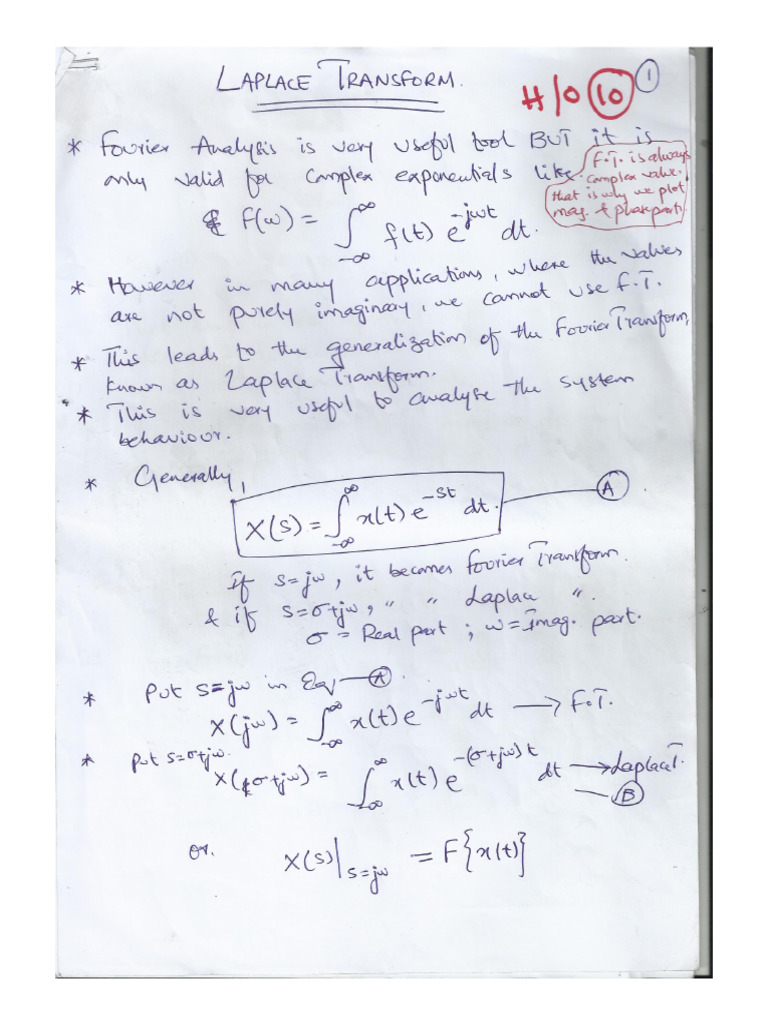 LAPLACE TRANSFORM.
H/O 10 1
* Fourier Analysis is very useful tool BUT it is
only valid for complex exponentials like.
F.T. is always
complex value.
that is why we plot
mag. & phase parts.
F(ω) = ∫_{-∞}^{∞} f(t) e^{-jωt} dt.
* However in many applications, where the values
are not purely imaginary, we cannot use F.T.
* This leads to the generalization of the Fourier Transform,
known as Laplace Transform.
* This is very useful to analyse the system
behaviour.
* Generally,
X(s) = ∫_{-∞}^{∞} x(t) e^{-st} dt. — A
If s=jω, it becomes Fourier Transform.
& if s=σ+jω, " " Laplace ".
σ = Real part ; ω = Imag. part.
* Put s=jω in Eq — A.
X(jω) = ∫_{-∞}^{∞} x(t) e^{-jωt} dt → F.T.
* Put s=σ+jω.
X(σ+jω) = ∫_{-∞}^{∞} x(t) e^{-(σ+jω)t} dt → Laplace T.
— B
or. X(s)|_{s=jω} = F{x(t)}